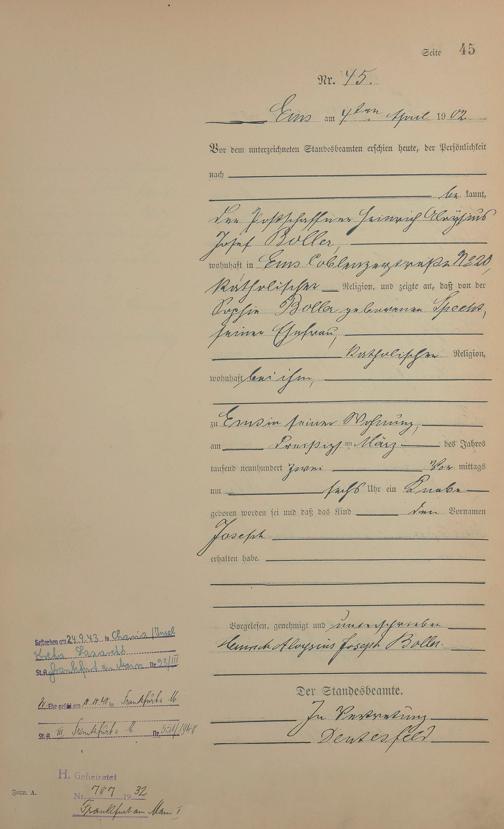 Seite 45
Nr. 45.
Ems am 4ten April 1902.
Vor dem unterzeichneten Standesbeamten erschien heute, der Persönlichkeit
nach
be kannt,
der Postschaffner Heinrich Aloysius
Josef Boller,
wohnhaft in Ems Coblenzerstraße N 220,
katholischer Religion, und zeigte an, daß von der
Sophie Boller geborenen Specht,
seiner Ehefrau,
katholischer Religion,
wohnhaft bei ihm,
zu Ems in seiner Wohnung,
am dreißigsten März des Jahres
tausend neunhundert zwei Vor mittags
um sechs Uhr ein Knabe
geboren worden sei und daß das Kind den Vornamen
Joseph
erhalten habe.
Vorgelesen, genehmigt und unterschrieben
Heinrich Aloysius Joseph Boller.
Der Standesbeamte.
In Vertretung
Gestorben am 24.9.43 in Chania/Insel
Kreta Lazarett
St.A. Frankfurt am Main Nr. 93/III
Frankfurt a. M
St.A. III Frankfurt a. M Nr.
H. Geheiratet
Nr. 787 1932
Frankfurt am Main I
Form. A.